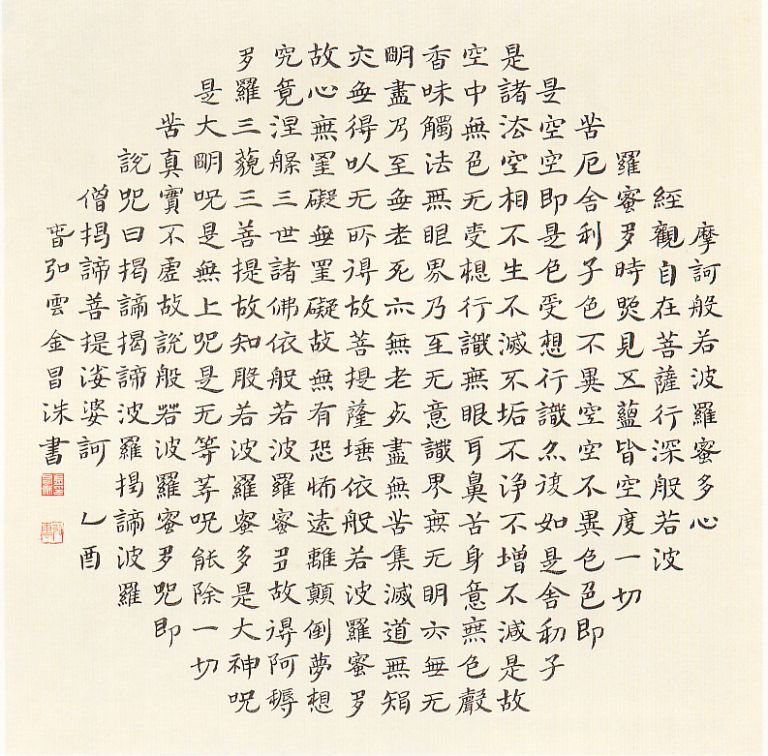 摩訶般若波羅蜜多心
經觀自在菩薩行深般若波
羅蜜多時照見五蘊皆空度一切
苦厄舍利子色不異空空不異色色即
是空空即是色受想行識亦復如是舍利子
是諸法空相不生不滅不垢不淨不增不減是故
空中無色无受想行識無眼耳鼻舌身意無色聲
香味觸法無眼界乃至无意識界無无明亦無无
明盡乃至無老死亦無老死盡無苦集滅道無智
亦無得以无所得故菩提薩埵依般若波羅蜜多
故心無罣礙無罣礙故無有恐怖遠離顛倒夢想
究竟涅槃三世諸佛依般若波羅蜜多故得阿耨
多羅三藐三菩提故知般若波羅蜜多是大神咒
是大明咒是無上咒是无等等咒能除一切
苦真實不虛故說般若波羅蜜多咒即
說咒曰揭諦揭諦波羅揭諦波羅
僧揭諦菩提娑婆訶 乙酉
旾弘雲金昌洙書